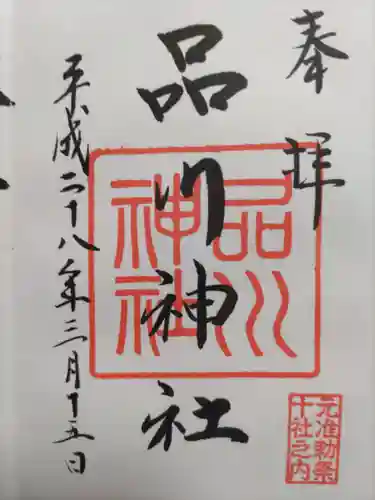 奉拝
品川神社
品川神社
元准勅祭十社之内
平成二十八年三月十五日